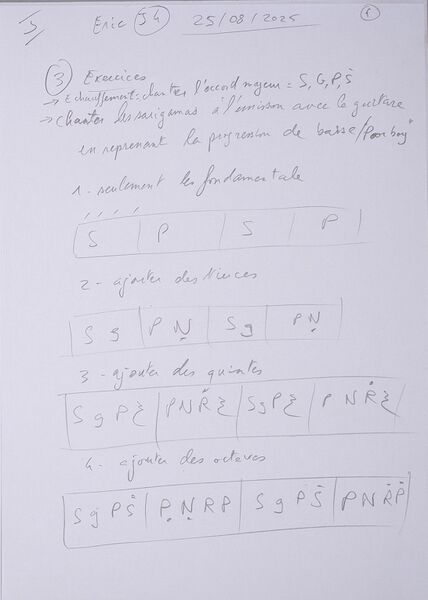 Eric J4 25/08/2025 1
3 Exercices
→ Echauffement: chanter l'accord majeur = S, G, P, Ṡ
→ Chanter les sarigamas à l'unisson avec la guitare
en reprenant la progression de basse/"Poor boy"
1 - seulement les fondamentale
S | P | S | P
2 - ajouter des tierces
S g | P Ṇ | S g | P Ṇ
3 - ajouter des quintes
S g P ξ | P N Ṙ ξ | S g P ξ | P N Ṙ ξ
4 - ajouter des octaves
S g P Ṡ | P̣ Ṇ R P | S g P Ṡ | P N Ṙ Ṗ